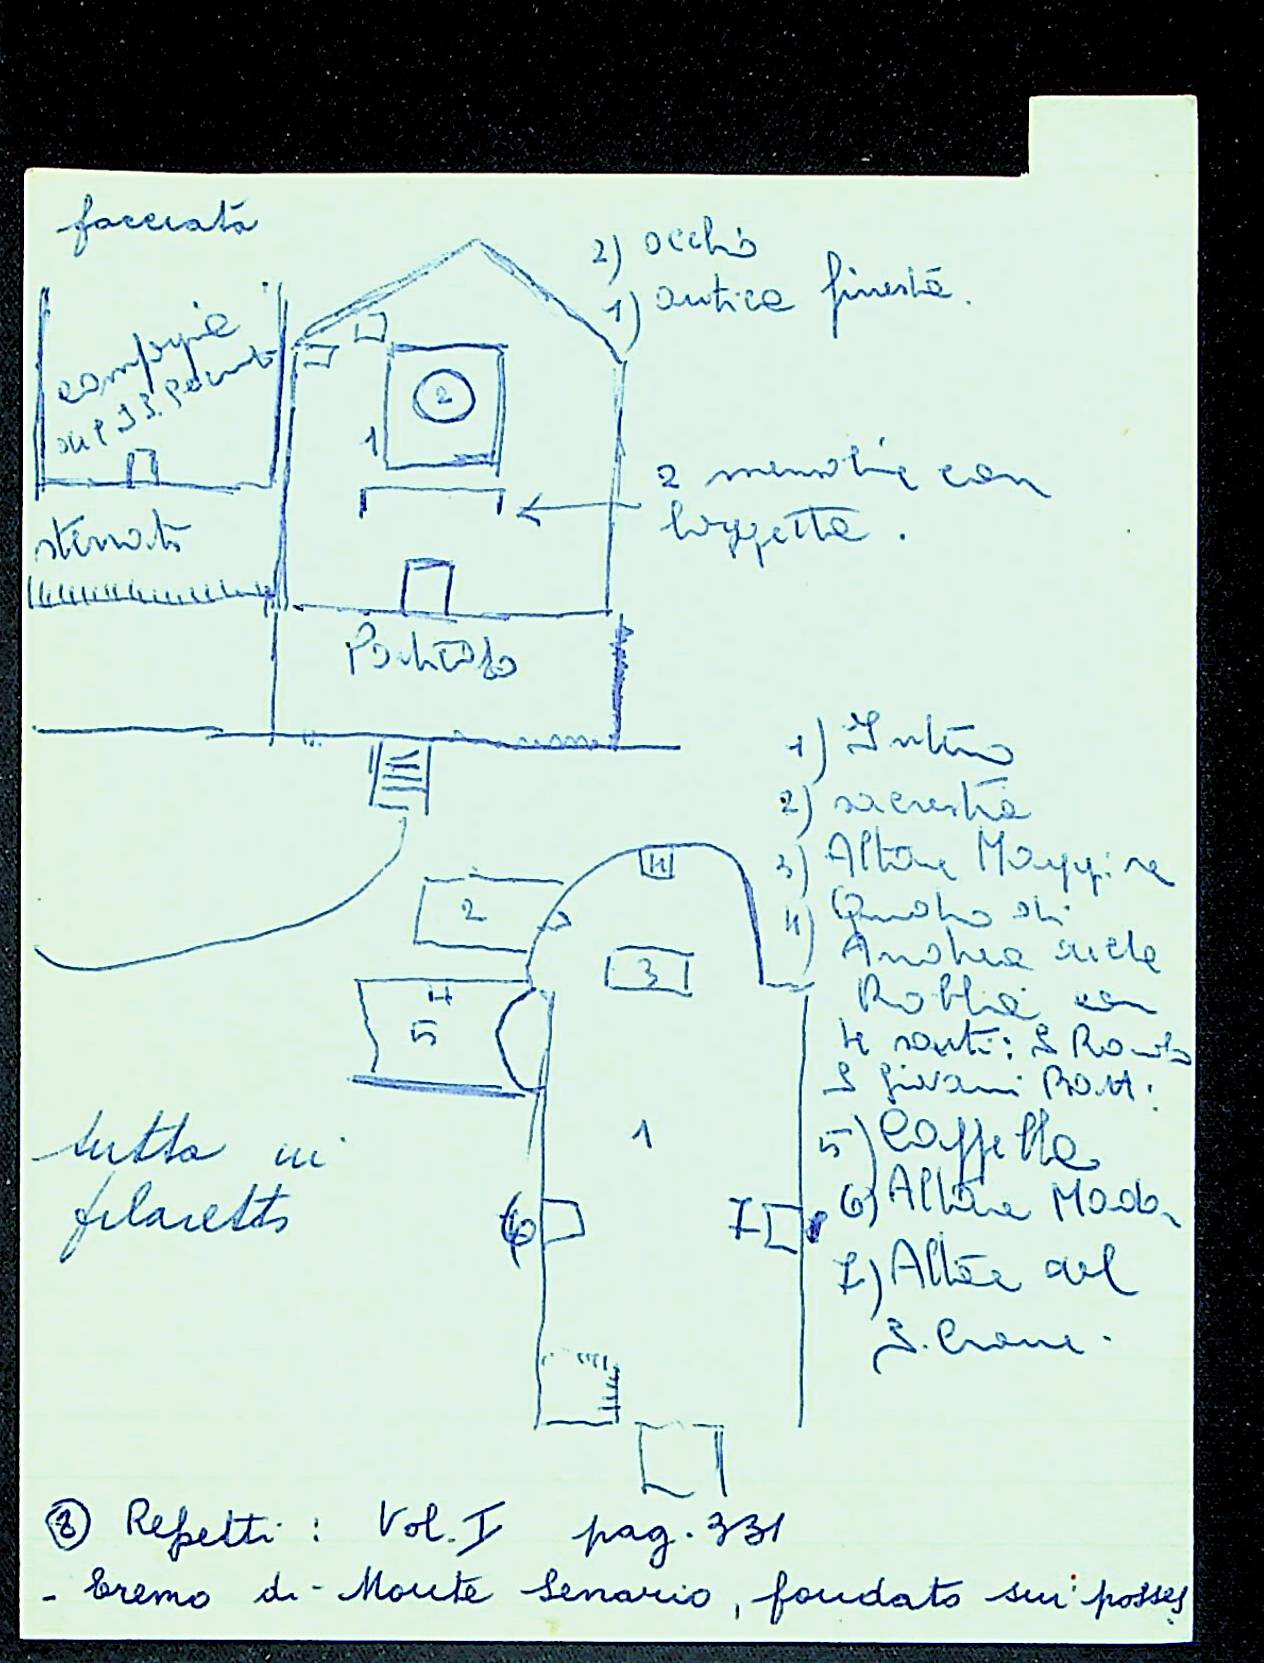 facciata
2) occhio
1) antica finestra.
compagnia
del SS.
2
1
2 mensole con
loggetta.
sterrato
Portico
1) Interno
2) sacrestia
3) Altare Maggiore
4) Quadro di
Andrea della
Robbia con
4 santi: S Romolo
S Giovanni Batt:
5) Cappella
6) Altare Madon
7) Altare del
S. Crone.
4
2
3
4
5
1
tutta in
filaretto
6
7
8 Repetti: Vol. I pag. 331
- Eremo di Monte Senario, fondato sui posses